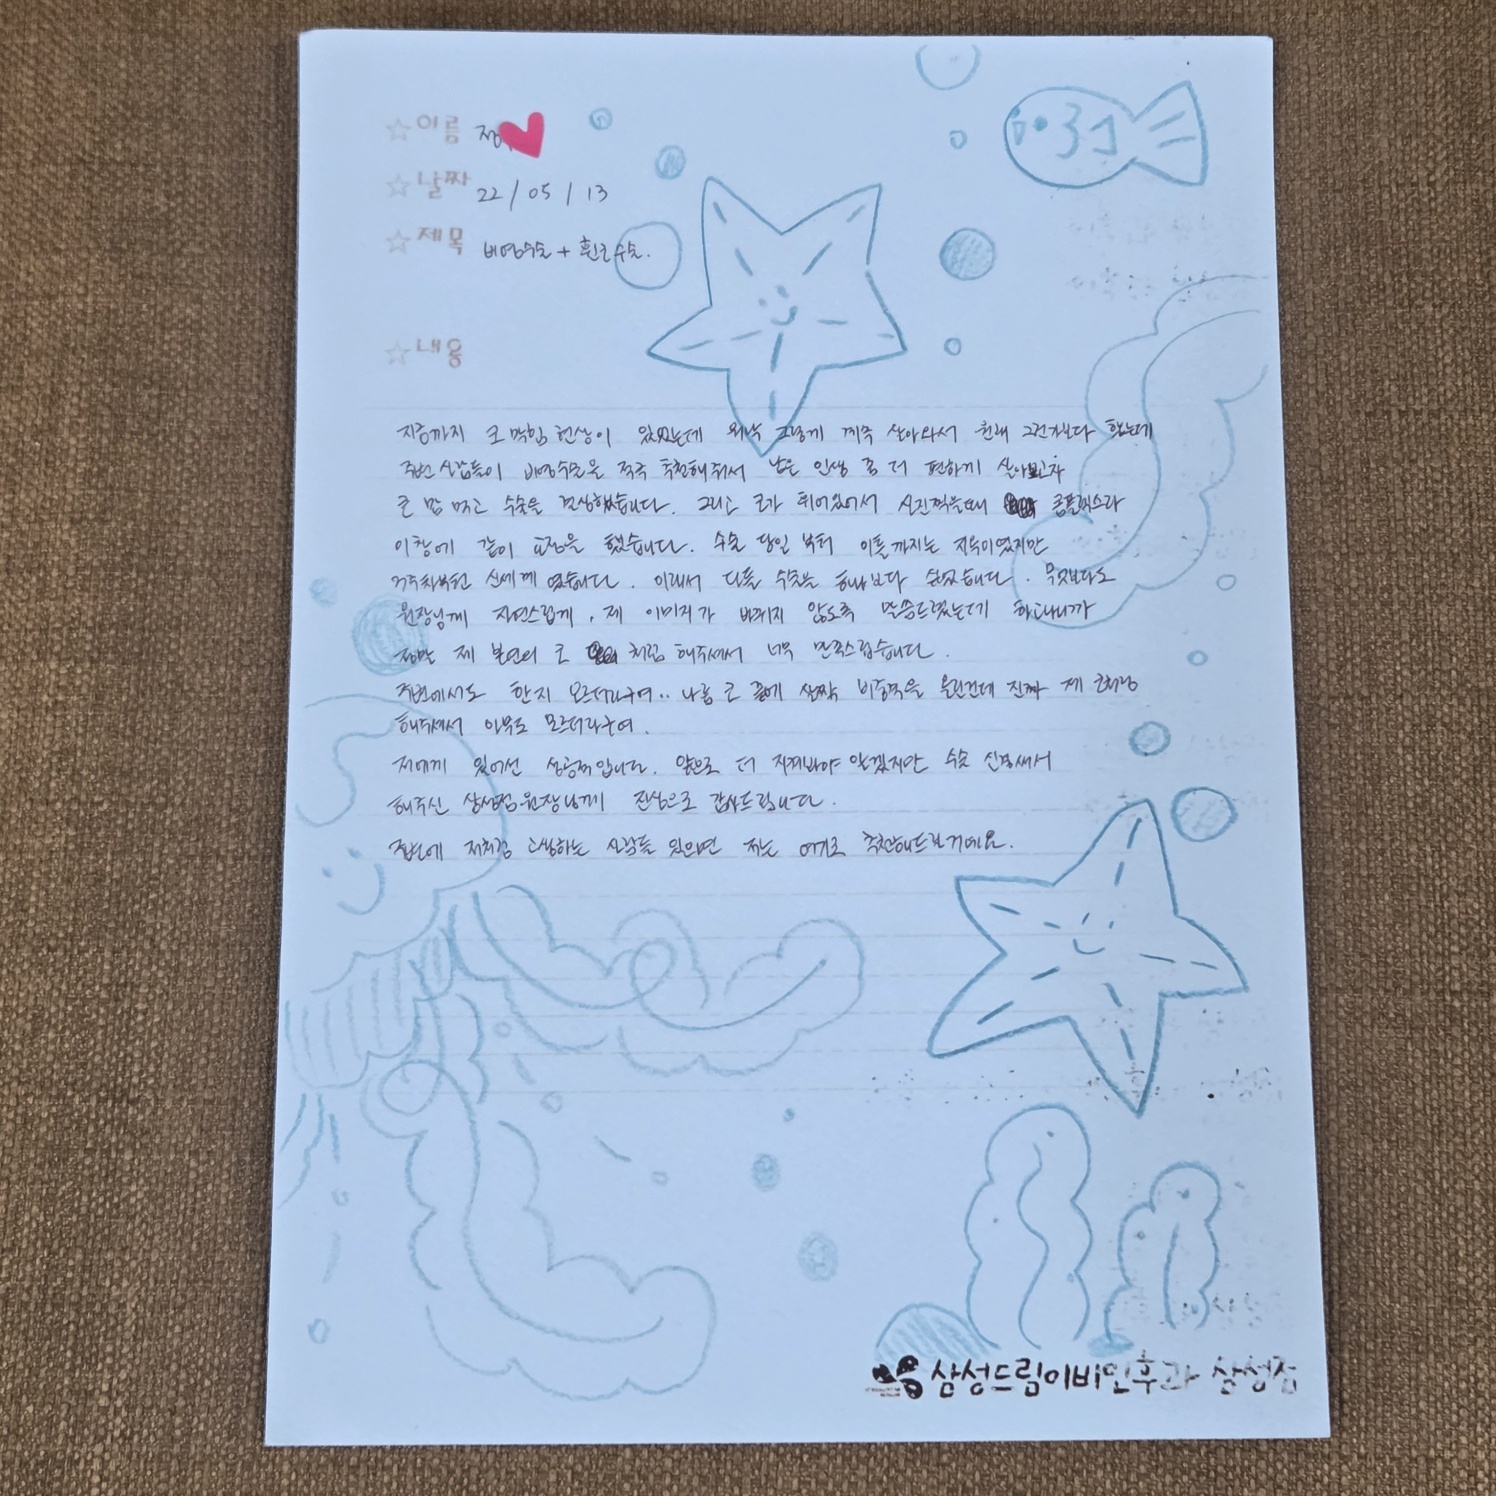 ☆이름 정
☆날짜 22 / 05 / 13
☆제목 비염수술 + 휜코수술.
☆내용
지금까지 코막힘 현상이 있었는데 워낙 그렇게 계속 살아와서 원래 그런가보다 했는데
주변 사람들이 비염수술을 적극 추천해줘서 남은 인생 좀 더 편하게 살아보고자
큰 맘 먹고 수술을 결심했습니다. 그리고 코가 휘어있어서 사진찍을때 콤플렉스라
이참에 같이 교정을 했습니다. 수술 당일 부터 이틀까지는 지옥이였지만
거주차부턴 신세계였습니다. 이래서 다들 수술을 하나보다 싶었습니다. 무엇보다도
원장님께 자연스럽게, 제 이미지가 바뀌지 않도록 말씀드렸는데 하고나니까
정말 제 본연의 코 처럼 해주셔서 너무 만족스럽습니다.
주변에서도 한지 모르더라구여.. 나름 코 끝에 살짝 비중격을 올린건데 진짜 제 코처럼
해주셔서 아무도 모르더라구여.
저에게 있어선 성공적입니다. 앞으로 더 지켜봐야 알겠지만 수술 신경써서
해주신 삼성점 원장님께 진심으로 감사드립니다.
주변에 저처럼 고생하는 사람들 있으면 저는 여기로 추천해드릴거예요.
삼성드림이비인후과 삼성점